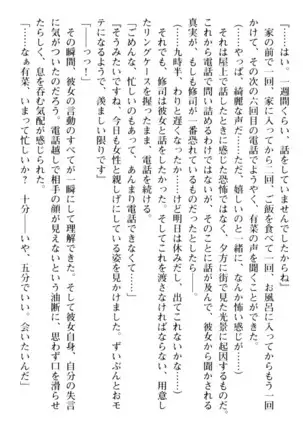 「……はい。一週間くらい、話をしていませんでしたからね」
家の前で一回、家に入ってから一回、ご飯を食べて一回、お風呂に入ってからもう一回
かけて、その次の六回目の電話でようやく、有菜の声を聞くことができた。
（……やっぱ、綺麗な声だ……ただ、嬉しいのと一緒に、なんか怖い感じが……）
それは屋上で話したときに感じた恐怖ではなく、夕方に街で見た光景に起因するものだ。
これから電話で問い詰めるわけではないが、そのことに話が及んで、彼女から聞かされる
真実が、もしも修司が一番恐れているものだったとしたら――。
（……九時半、わりと遅くなったか……けど明日は休みだし、出てこれないかな）
それでも、修司は彼女と話をしたかった。そしてこれを渡さなければと、用意し
たリングケースを握ったまま、電話を続ける。
「ごめんな、忙しいのもあって、あんまり電話できなくて……」
「そうみたいですね、今日も女性と親しげにしている姿を見かけましたし、ずいぶんとおモ
テになるようで、羨ましい限りです」
「――っっ！」
その瞬間、彼女の言動のすべてが、一瞬にして理解できた。そして彼女自身、自分の失言
に気がついたのだろう、電話越しで相手の顔が見えないという油断に、思わず口を滑らせ
たらしく、息を呑む気配が感じられた。
「……なぁ有菜、いまって忙しいか？　十分……いや、五分でいい。会いたいんだ」